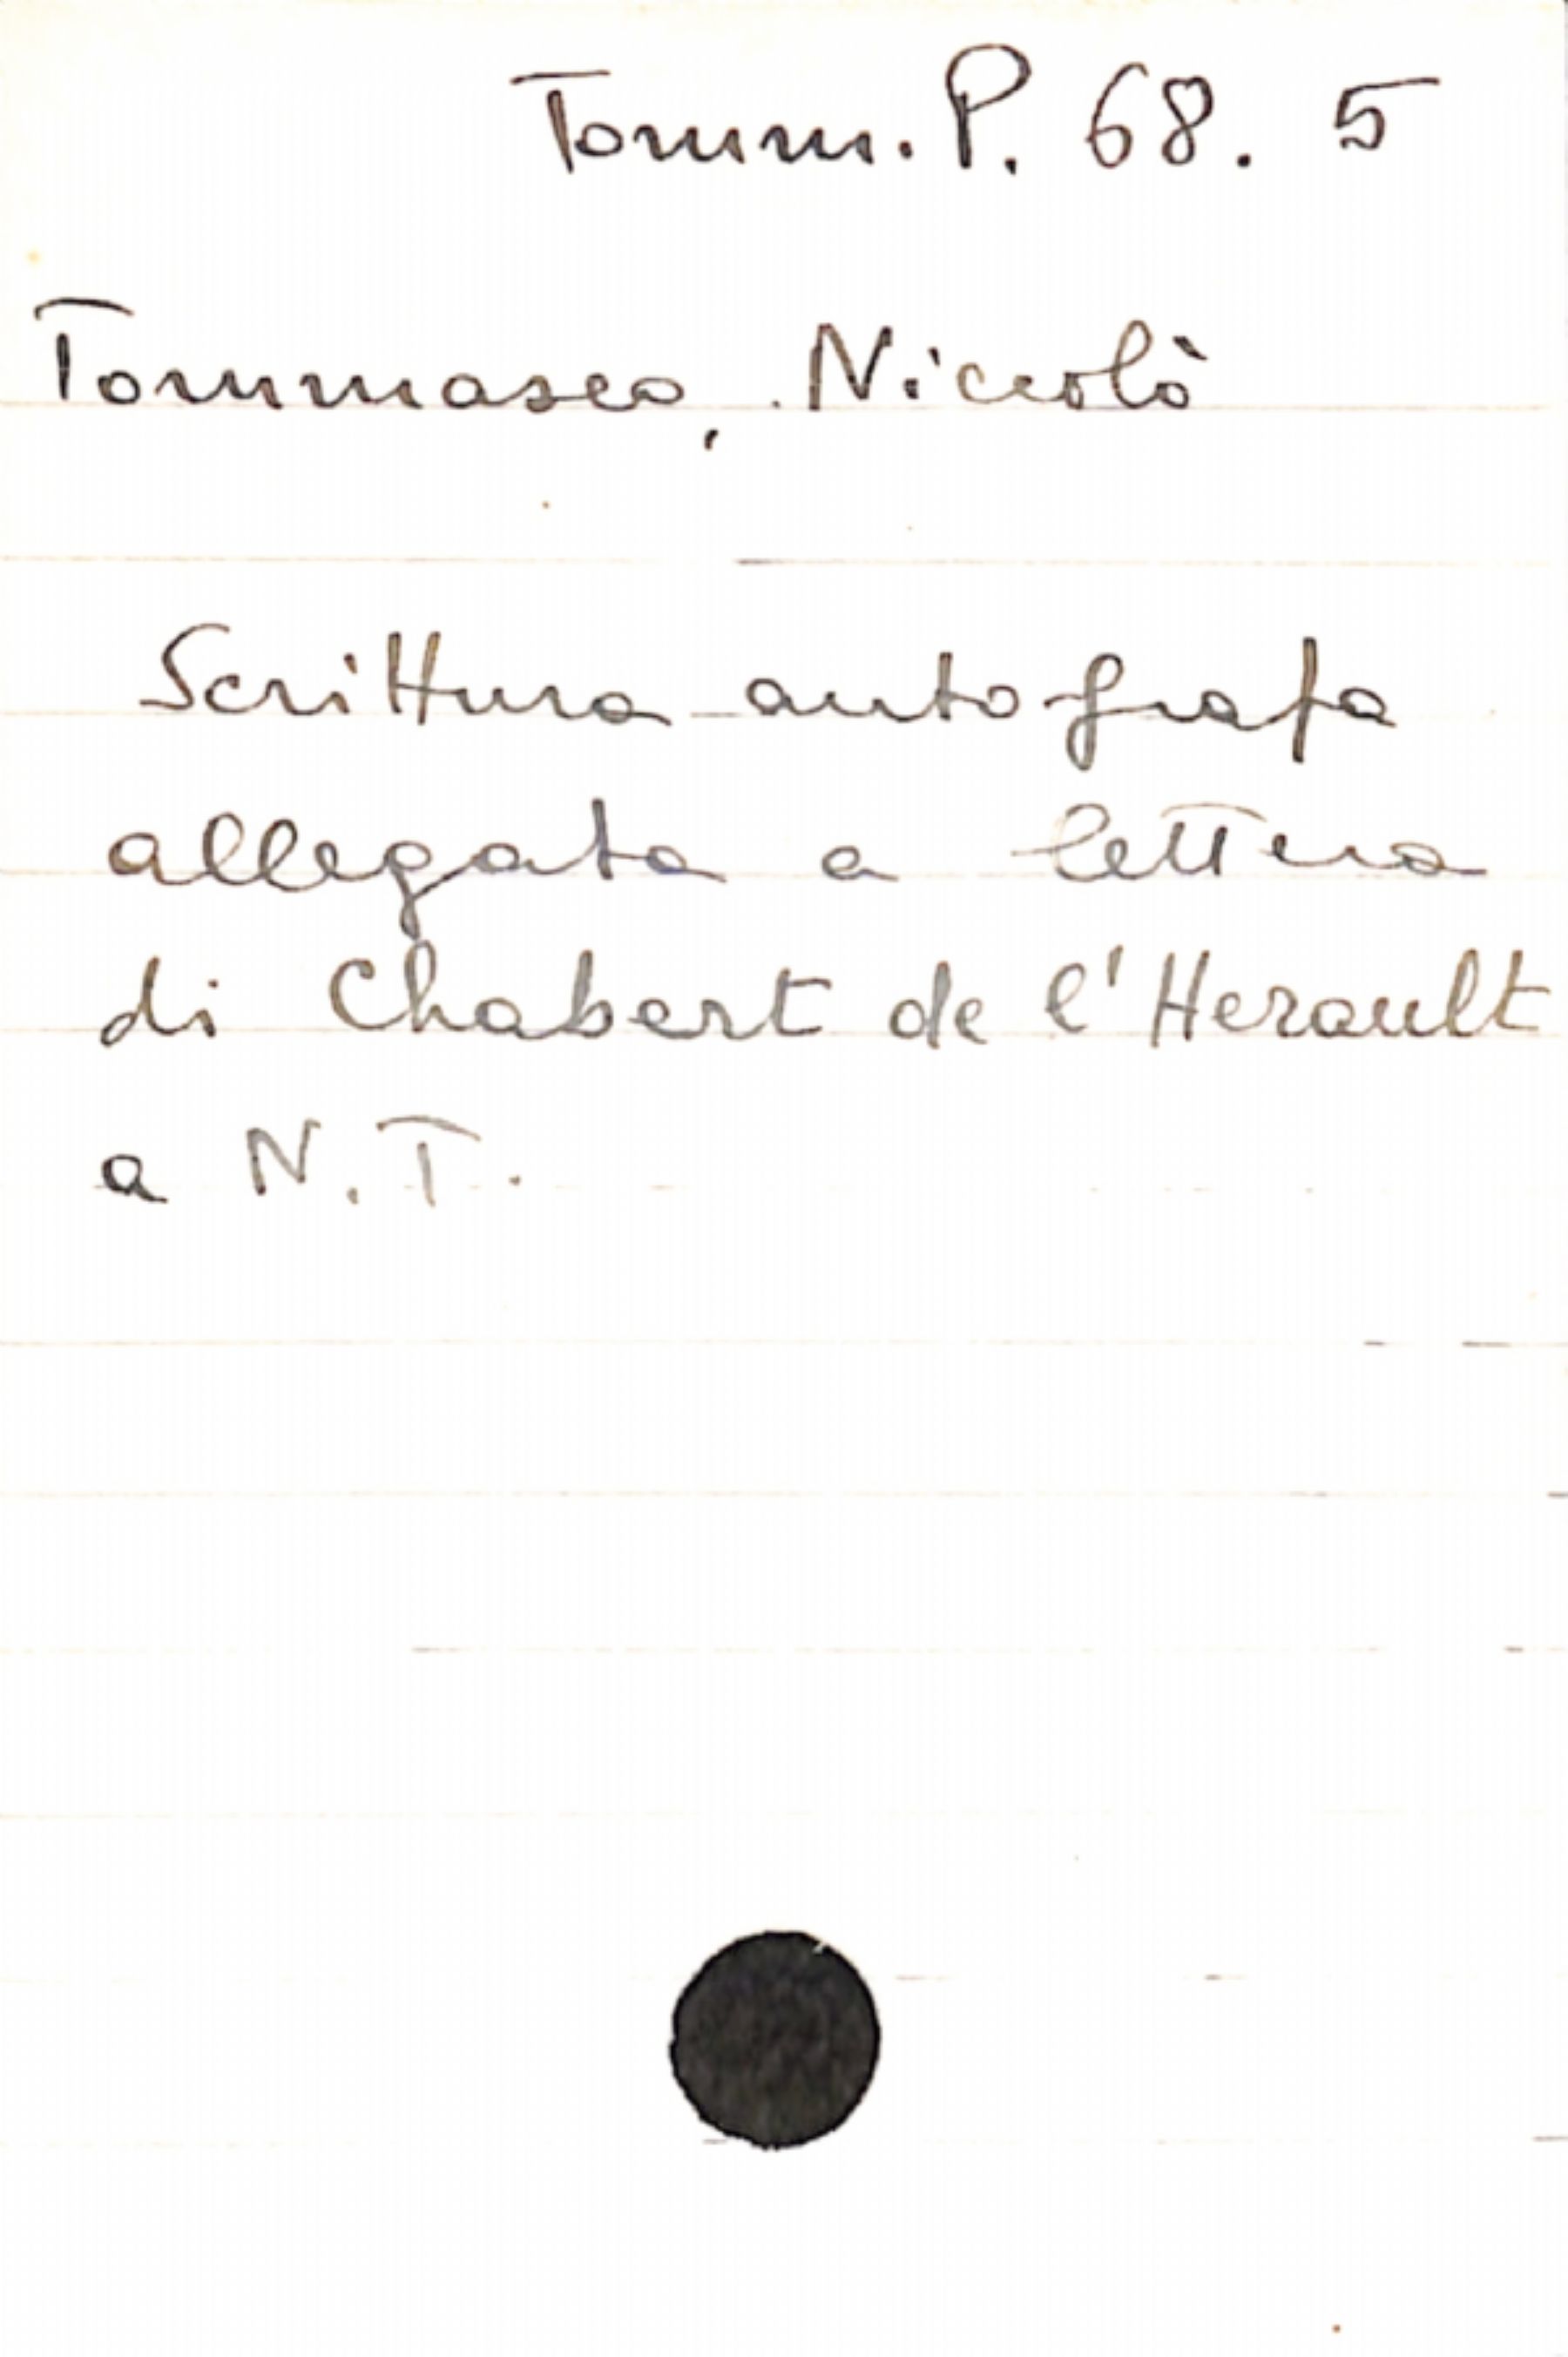 Tomm. P. 68. 5
Tommaseo, Niccolò
Scrittura autografa
allegata a lettera
di Chabert de l'Herault
a N. T.